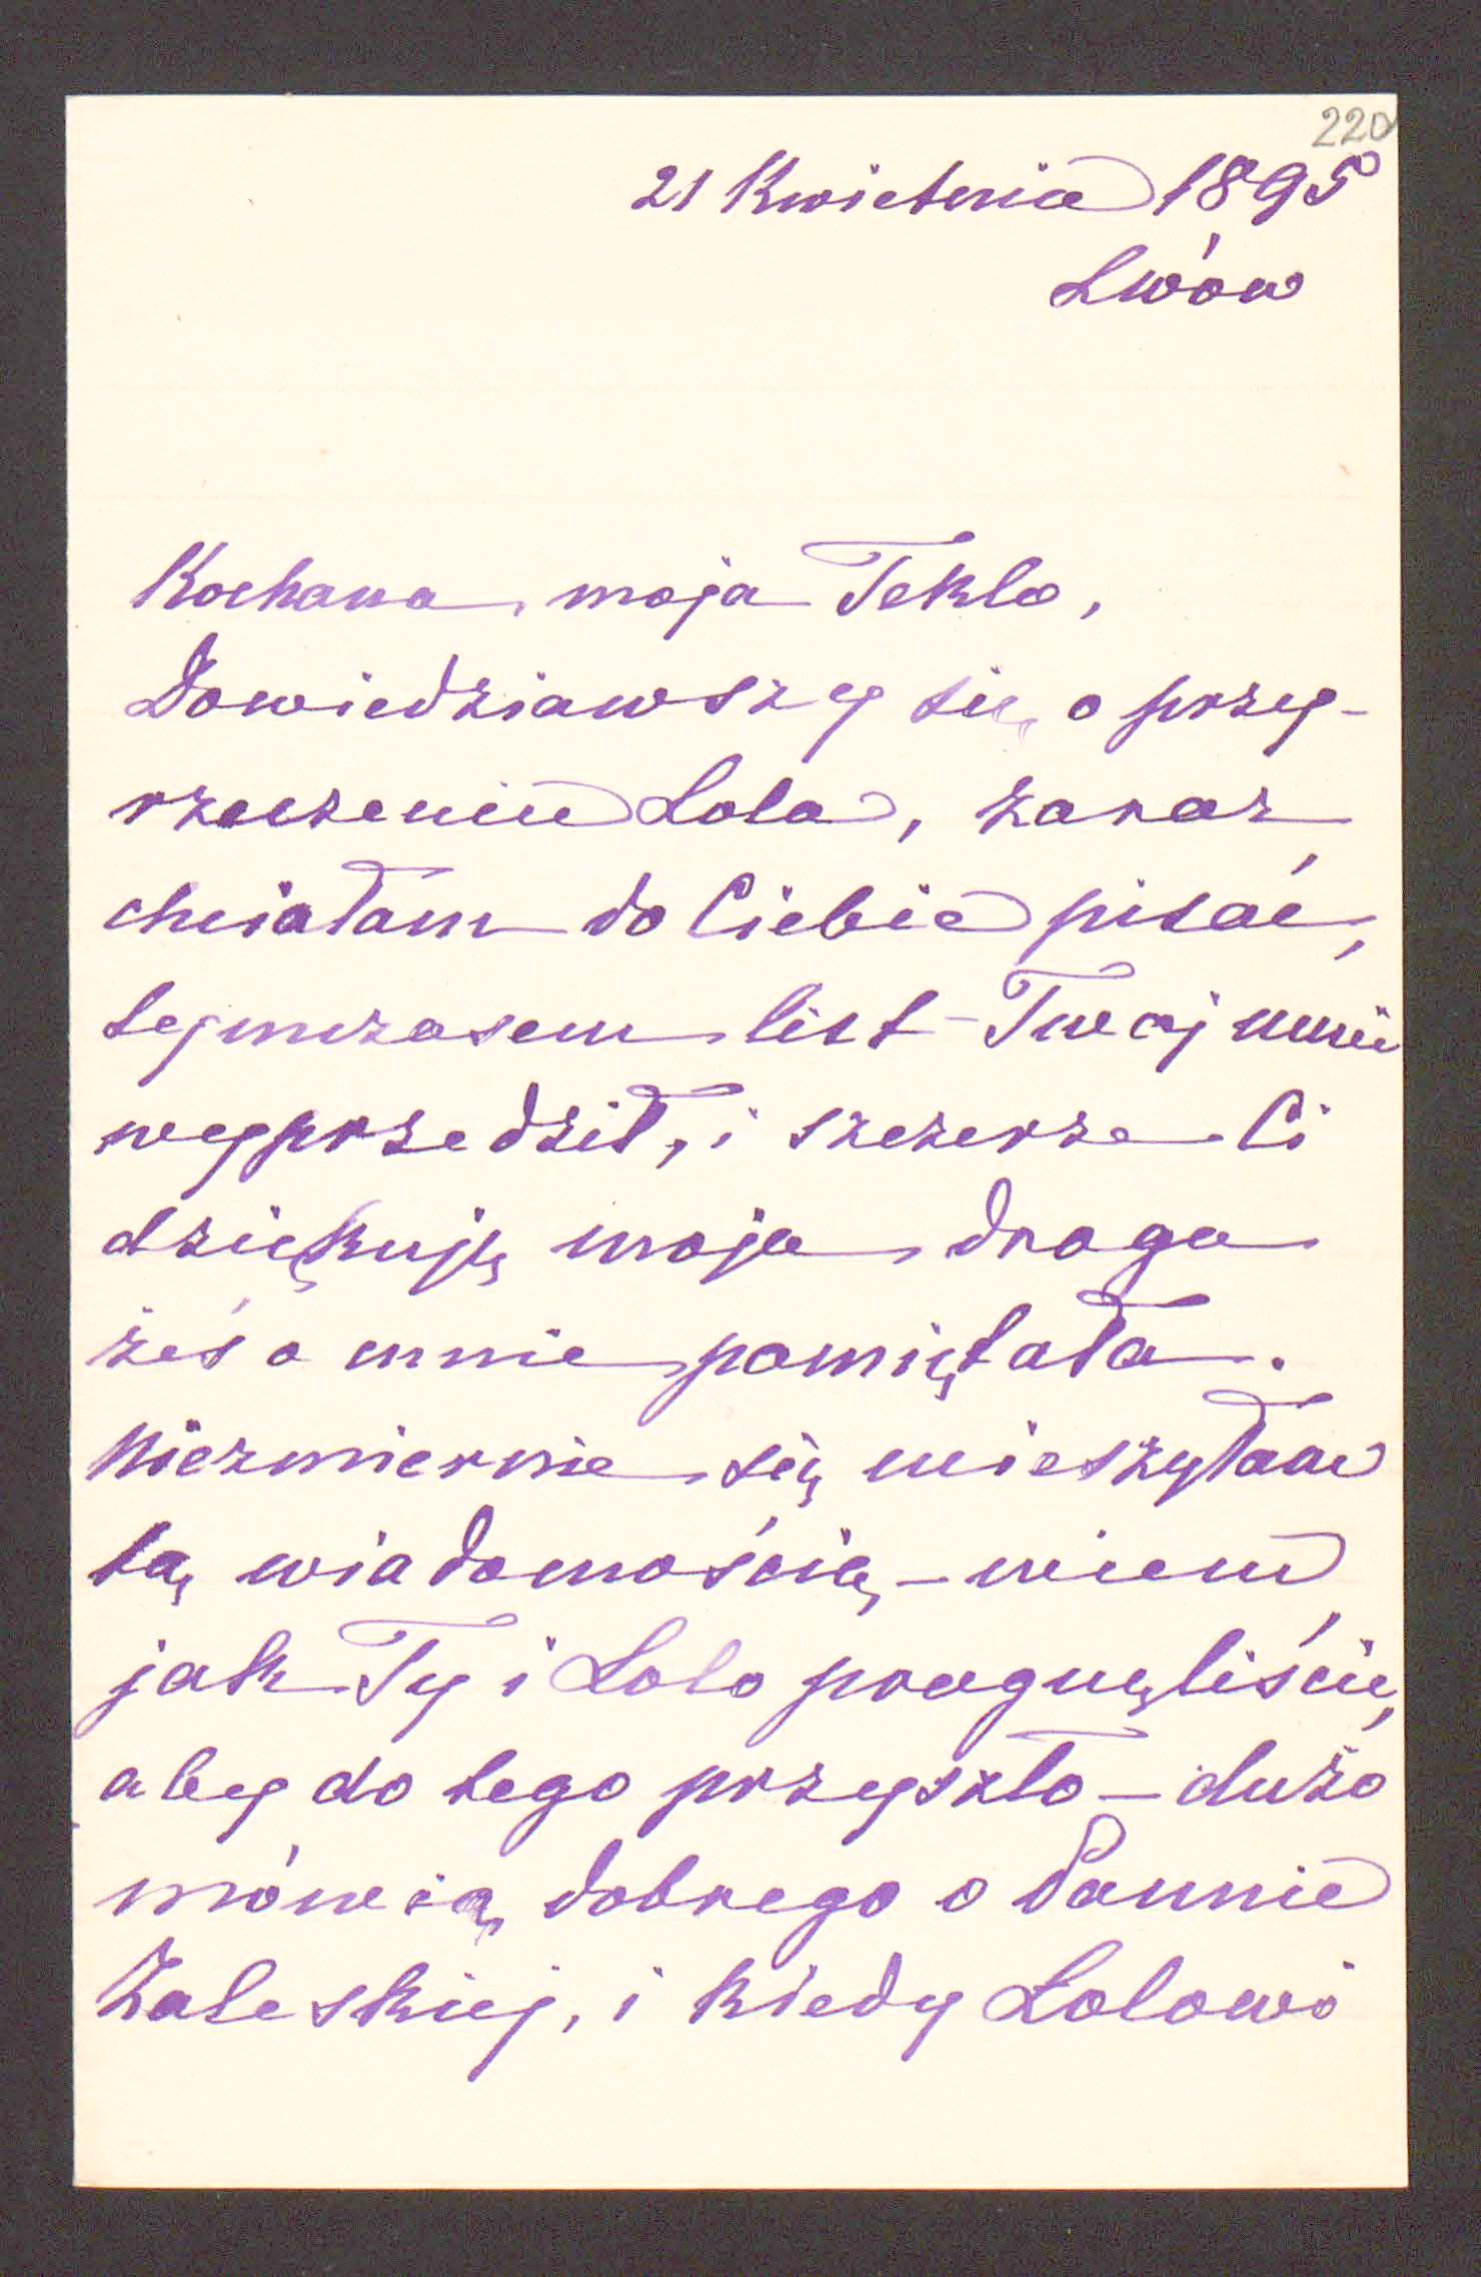 220
21 Kwietnia 1895
Lwów
Kochana moja Teklo,
Dowiedziawszy się o przy-
rzeczeniu Lola, zaraz
chciałam do Ciebie pisać,
tymczasem list Twój mnie
wyprzedził, i szczerze Ci
dziękuję moja droga
żeś o mnie pamiętała.
Niezmiernie się ucieszyłam
tą wiadomością – wiem
jak Ty i Lolo pragnęliście,
aby do tego przyszło – dużo
mówią dobrego o Pannie
Zaleskiej, i kiedy Lolowi